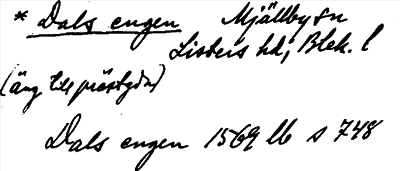 * Dals engen Mjällby sn
Listers hd, Blek. l
(äng till prästgdn)
Dals engen 1569 lb s 748